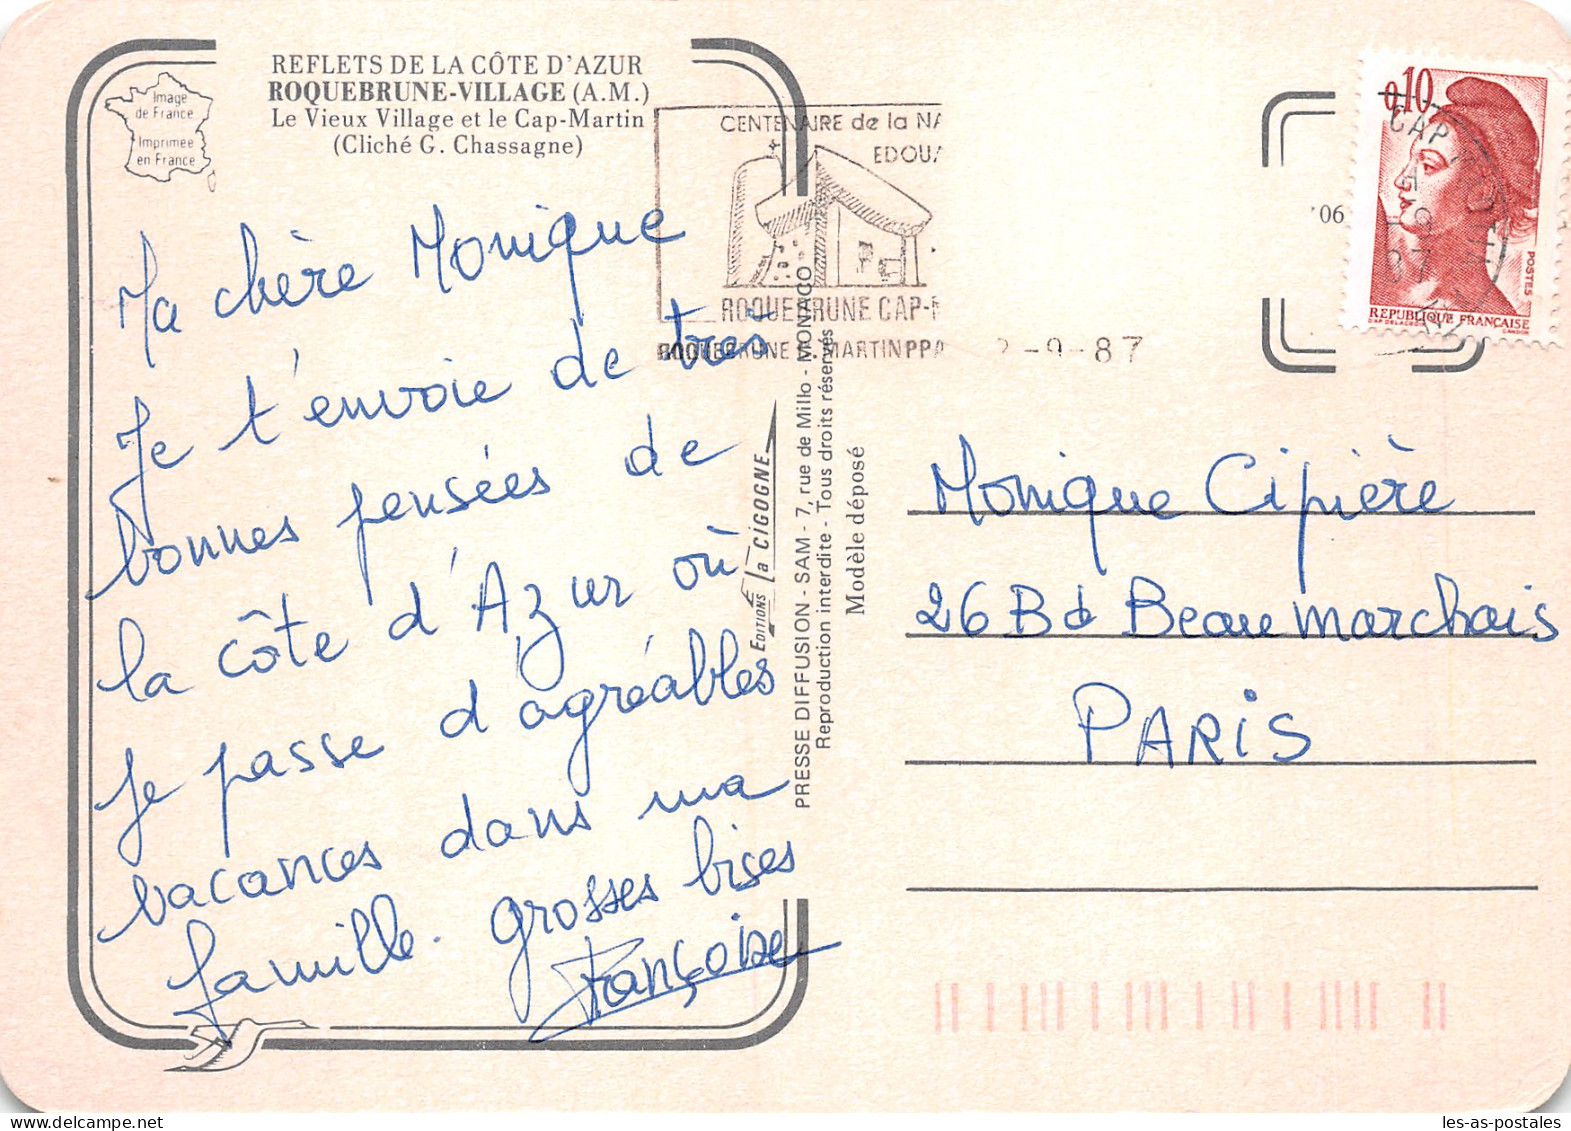 REFLETS DE LA CÔTE D'AZUR
ROQUEBRUNE-VILLAGE (A.M.)
Le Vieux Village et le Cap-Martin
(Cliché G. Chassagne)
Image
de France
Imprimée
en France
Ma chère Monique
Je t'envoie de très
bonnes pensées de
la côte d'Azur où
je passe d'agréables
vacances dans ma
famille. grosses bises
Françoise
CENTENAIRE de la NA
EDOUA
ROQUEBRUNE CAP-M
ROQUEBRUNE C. MARTIN PPA
2-9-87
EDITIONS la CIGOGNE
PRESSE DIFFUSION - SAM - 7, rue de Millo - MONACO
Reproduction interdite - Tous droits réservés
Modèle déposé
06
0,10
POSTES
REPUBLIQUE FRANÇAISE
D'AP. DELACROIX
GANDON
Monique Cipière
26 Bd Beaumarchais
PARIS
les-as-postales